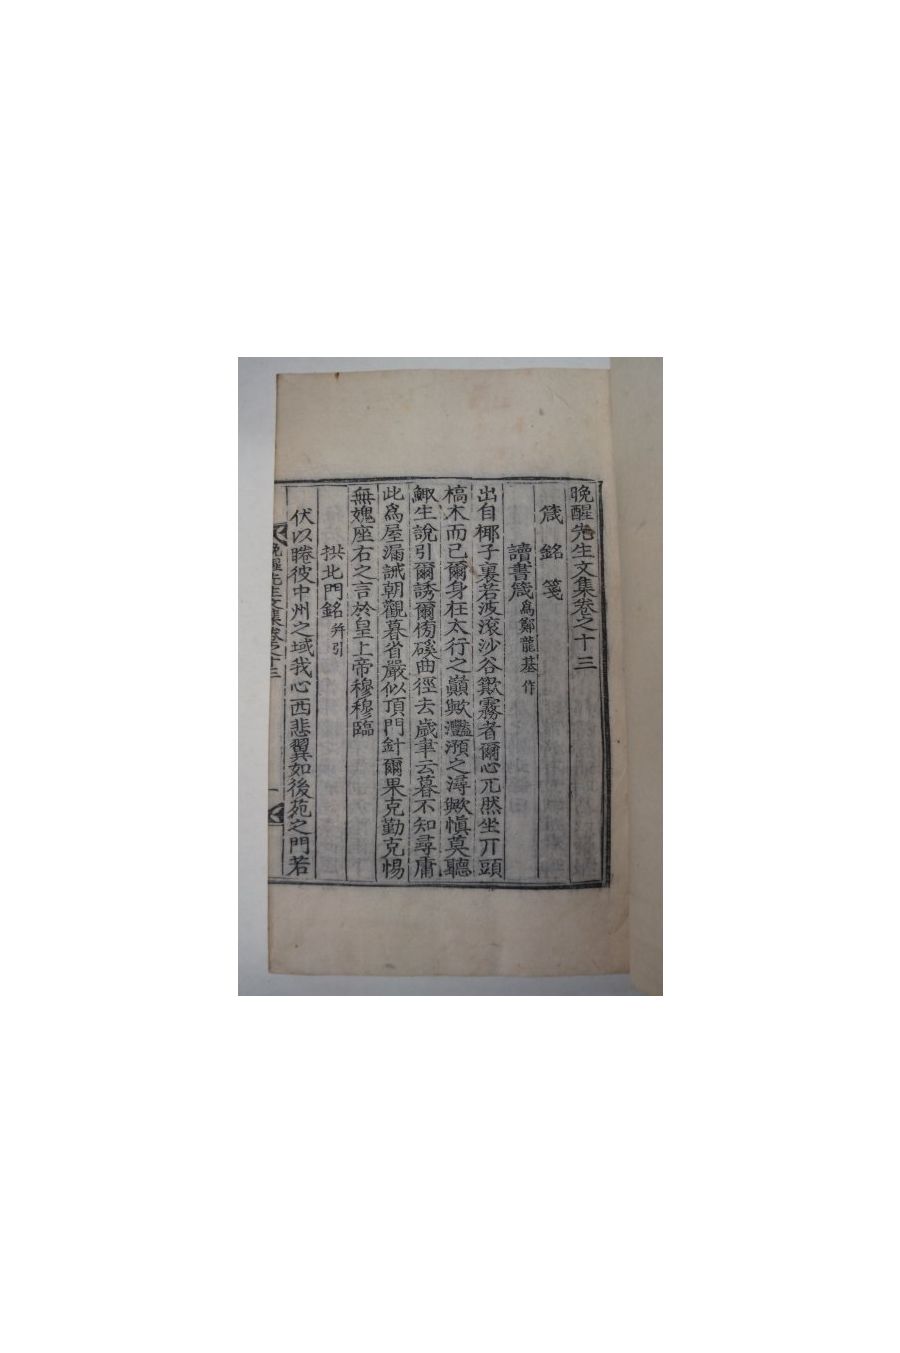 晩醒先生文集卷之十三
箴 銘 箋
讀書箴 爲鄭龍基作
出自椰子裏若波滚沙谷歕霧者爾心兀然坐丌頭
槁木而已爾身枉太行之巓歟灩澦之潯歟愼莫聽
鯫生說引爾誘爾傍磎曲徑去歲聿云暮不知尋庸
此爲屋漏誡朝觀暮省嚴似頂門針爾果克勤克惕
無媿座右之言於皇上帝穆穆臨
拱北門銘 幷引
伏以睠彼中州之域我心西悲翼如後苑之門若
晩醒先生文集卷之十三
一